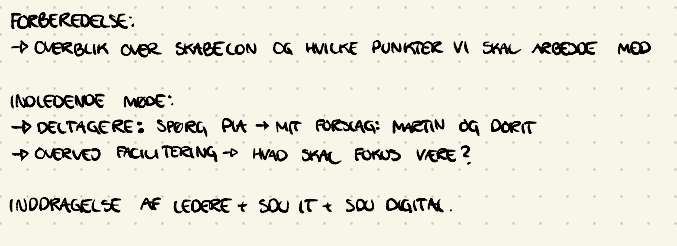 FORBEREDELSE:
→ OVERBLIK OVER SKABELON OG HVILKE PUNKTER VI SKAL ARBEDOE MED
INDLEDENDE MØDE:
→ DELTAGERE: SPØRG PIA → MIT FORSLAG: MARTIN OG DORIT
→ OVERVEJ FACILITERING → HVAD SKAL FOKUS VÆRE?
INDDRAGELSE AF LEDERE + SDU IT + SDU DIGITAL.